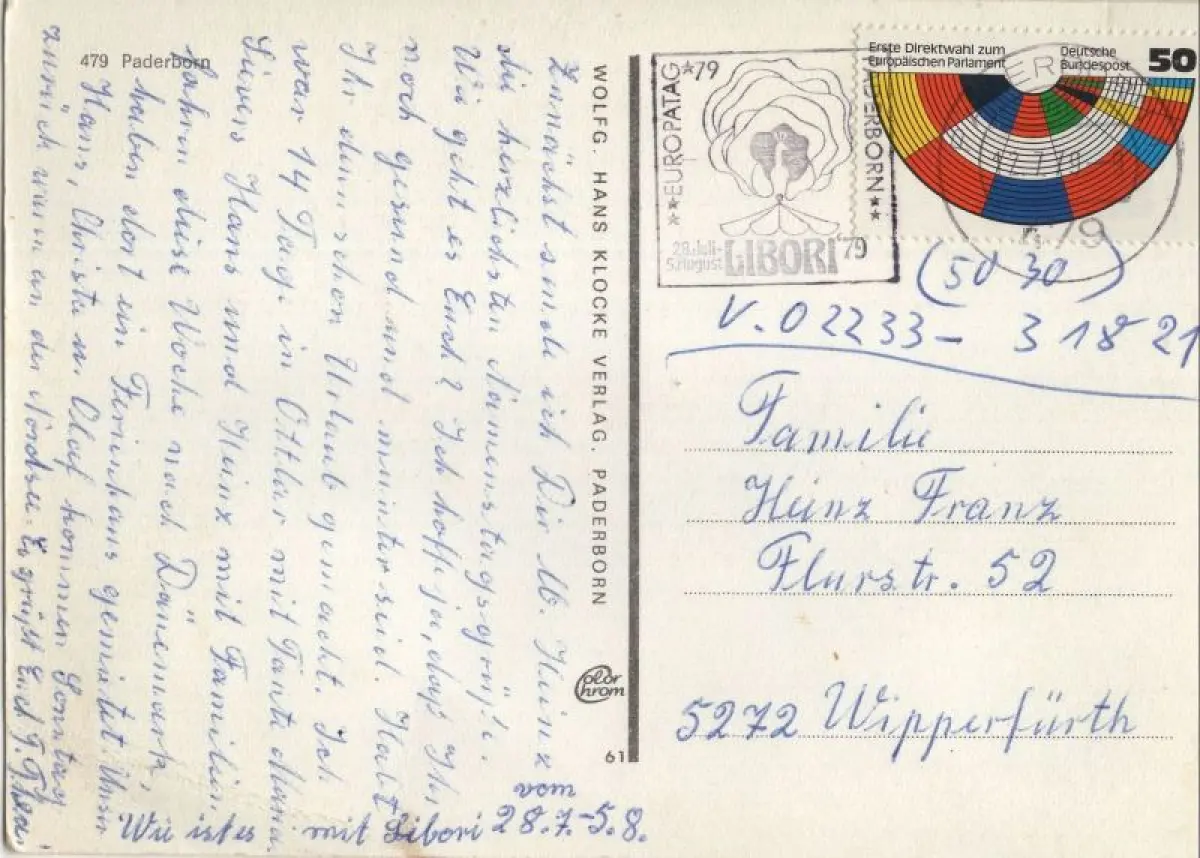 479 Paderborn
Zunächst sende ich Dir lb. Heinz
die herzlichsten Namenstagsgrüße.
Wie geht es Euch? Ich hoffe ja, daß Ihr
noch gesund und munter seid. Habt
Ihr denn schon Urlaub gemacht. Ich
war 14 Tage in Ottlar mit Tante
Sievers Hans und Heinz mit Familien
fahren diese Woche nach Dänemark,
haben dort ein Ferienhaus gemietet. Unser
Hans, Christa u. Olaf kommen Sonntag
zurück von der Nordsee. Es grüßt Euch T. Thea.
Wie ist es mit Libori vom 28.7.-5.8.
WOLFG. HANS KLOCKE VERLAG. PADERBORN
Color Chrom
61
**EUROPATAG*79
PADERBORN**
28.Juli-
5.August
LIBORI'79
Erste Direktwahl zum
Europäischen Parlament
Deutsche
Bundespost
50
479
(50 30)
V. 02233 - 3 18 21
Familie
Heinz Franz
Flurstr. 52
5272 Wipperfürth